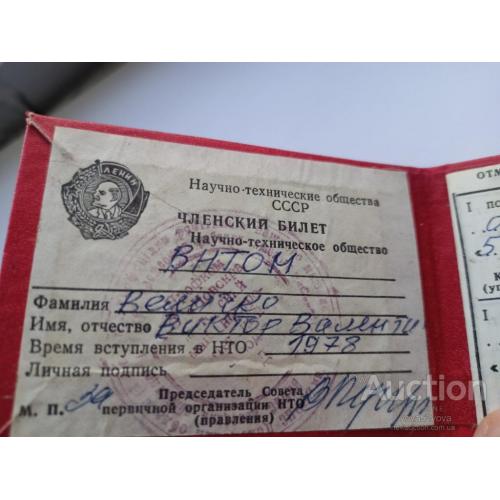 ЛЕНИН
Научно-технические общества
СССР
ЧЛЕНСКИЙ БИЛЕТ
Научно-техническое общество
ВНТОМ
Фамилия
Имя, отчество Виктор Валенти
Время вступления в НТО 1978
Личная подпись
Председатель Совета
М. П. первичной организации НТО
(правления)
ОТМ
I по
5.
К
(уп
I
Auction